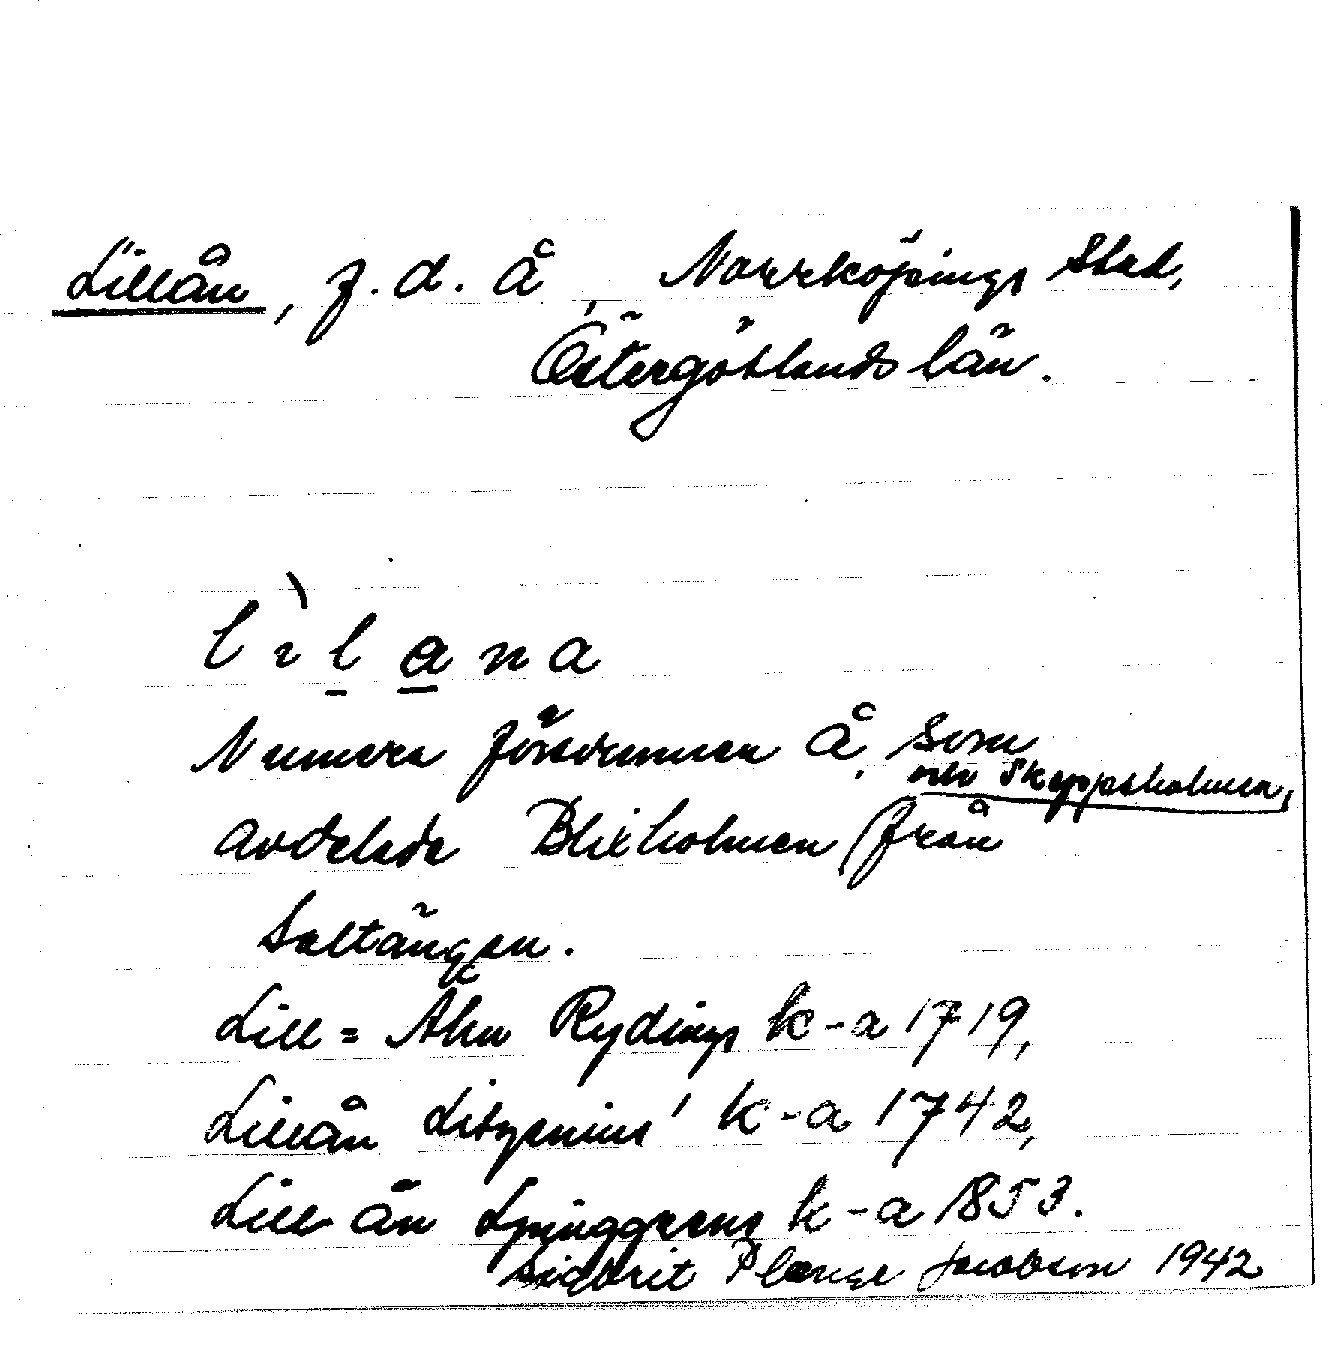 Lillån, f.d. å, Norrköpings Stad,
Östergötlands län.
lìlana
Numera försvunnen å, som
och Skeppsholmen,
avdelade Blixholmen från
Saltängen.
Lill= Åhn Rydings k-a 1719,
Lillån k-a 1742,
Lill ån Ljunggrens k-a 1853.
Sigbrit Plænge Jacobson 1942